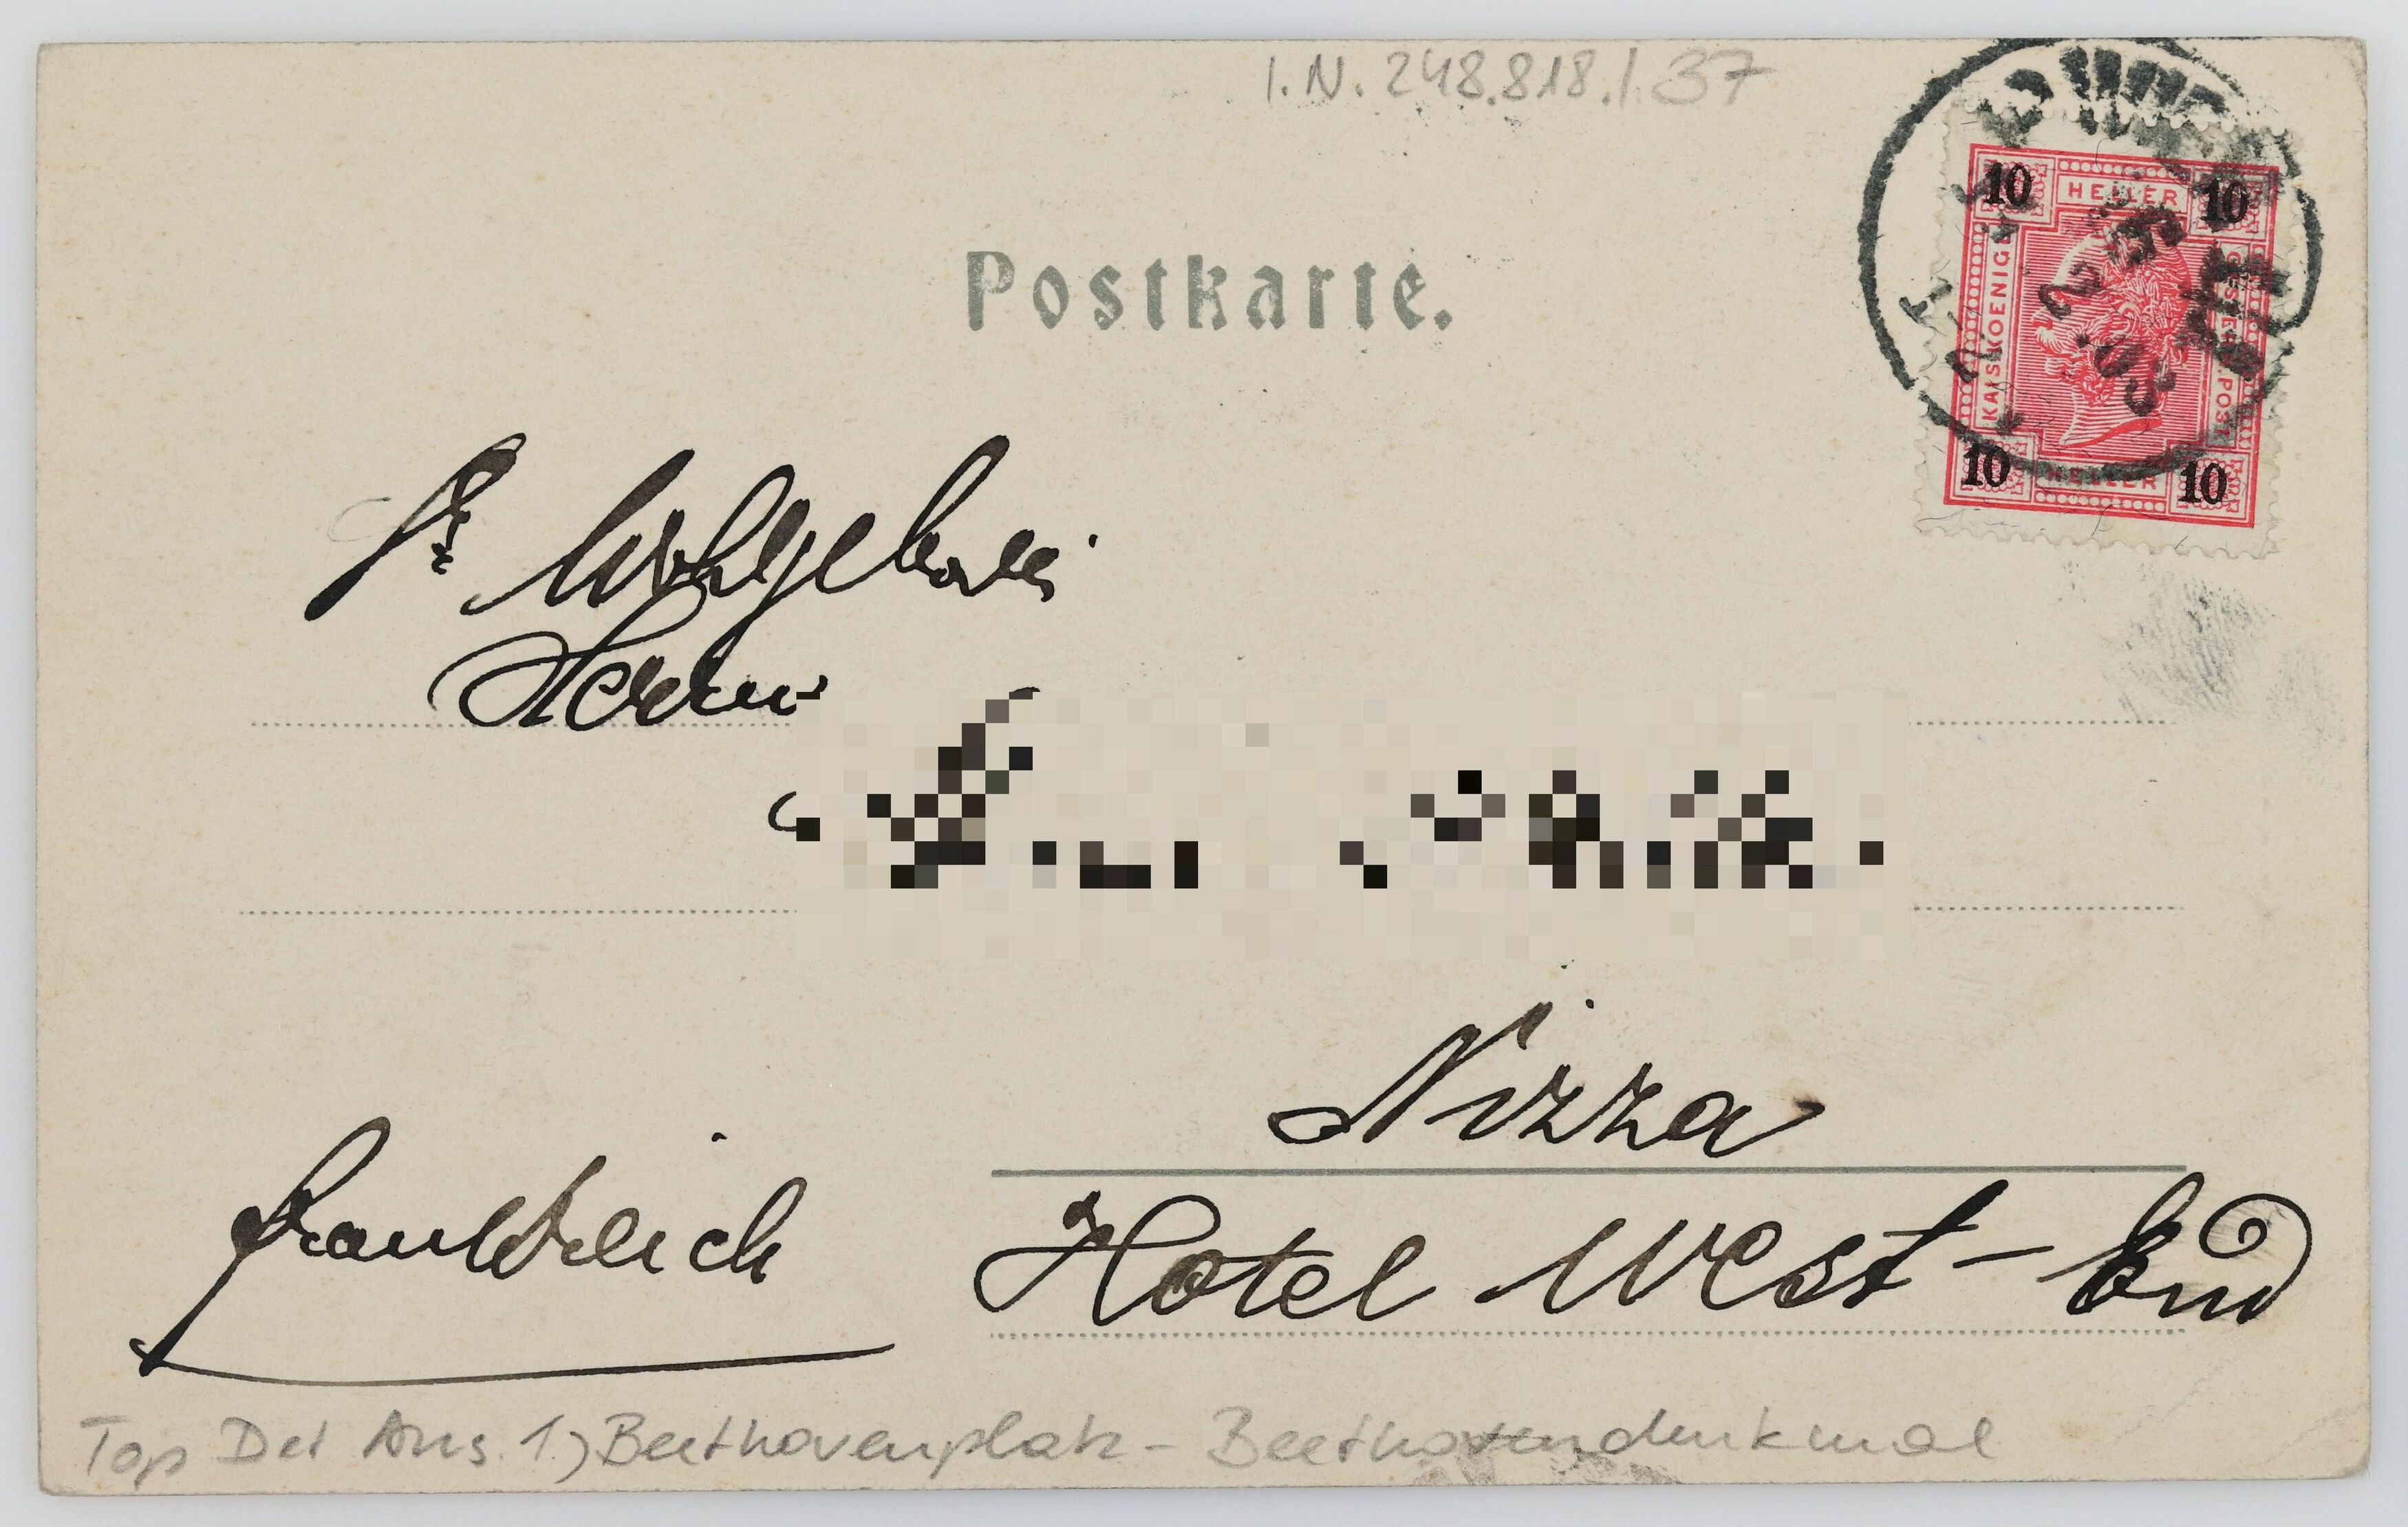 I.N. 248.818./37
10 HELLER 10
KAIS. KOENIGL. OESTERR. POST
10 HELLER 10
Postkarte.
Sr Wohlgeboren
Herrn
Nizza
Hotel West-End
Frankreich
Top Det Ans. 1.) Beethovenplatz - Beethovendenkmal